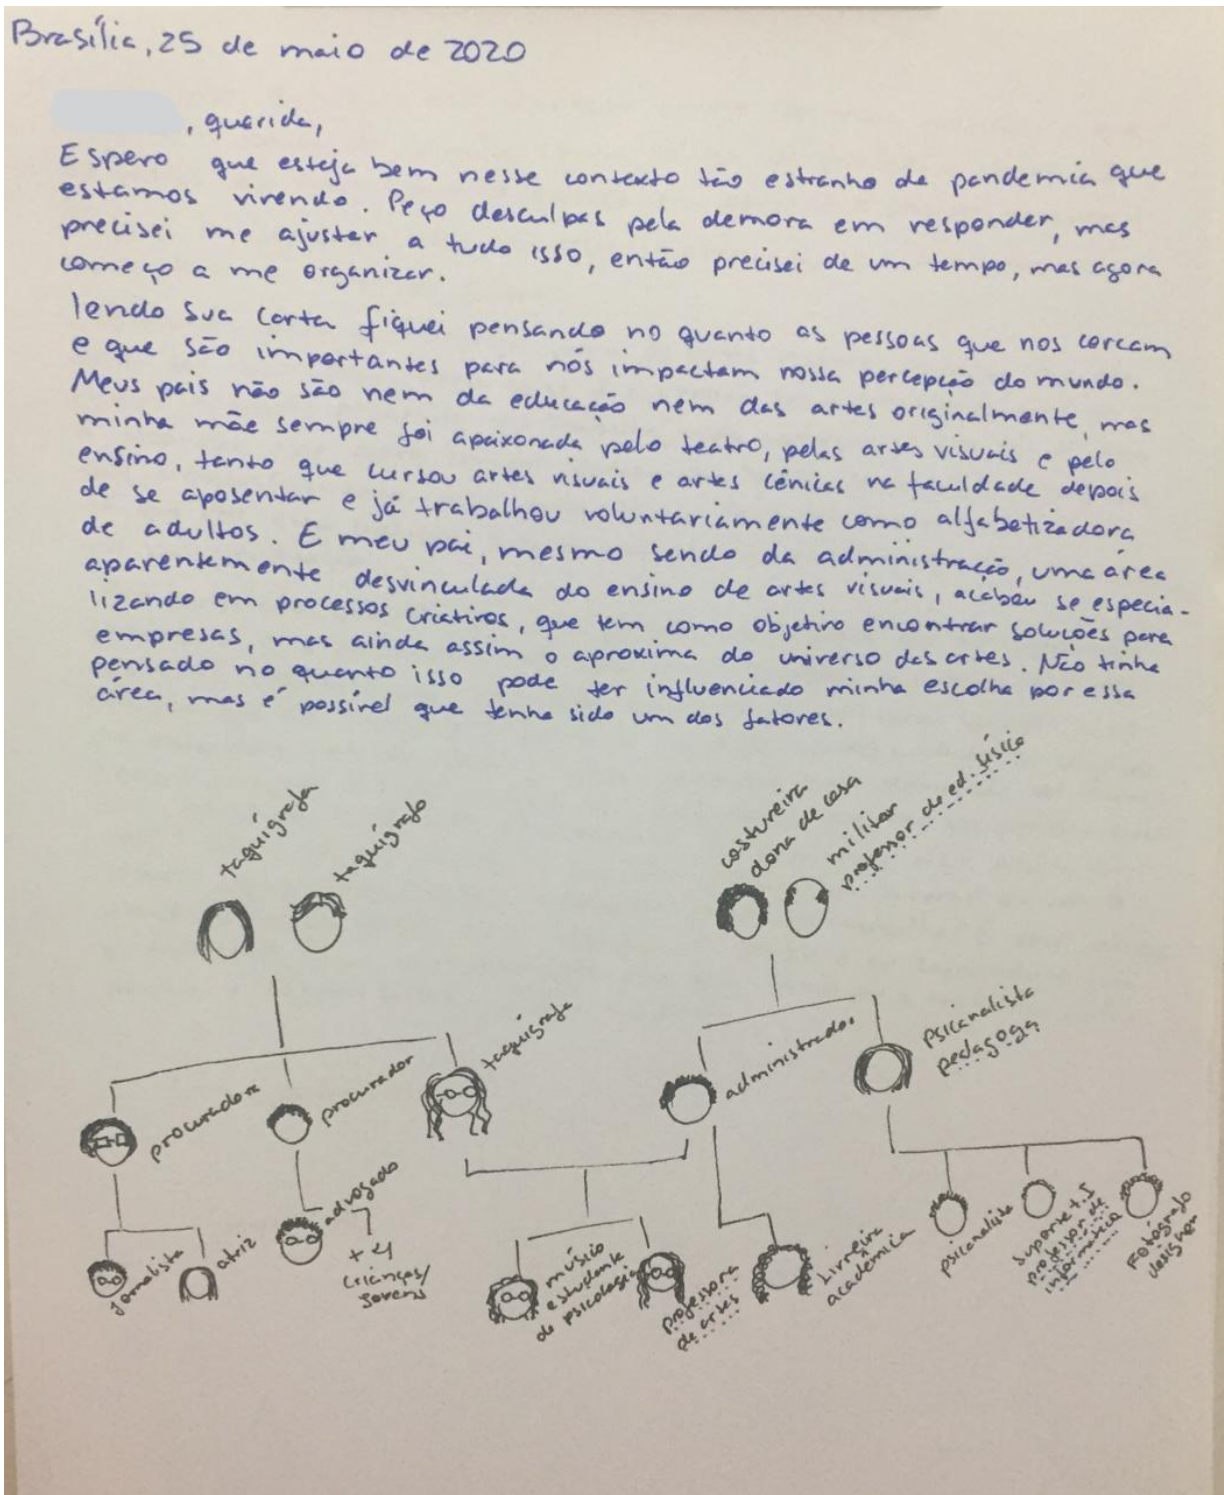 Brasília, 25 de maio de 2020
, querida,
Espero que esteja bem nesse contexto tão estranho de pandemia que
estamos vivendo. Peço desculpas pela demora em responder, mas
precisei me ajustar a tudo isso, então precisei de um tempo, mas agora
começo a me organizar.
lendo sua carta fiquei pensando no quanto as pessoas que nos cercam
e que são importantes para nós impactam nossa percepção do mundo.
Meus pais não são nem da educação nem das artes originalmente, mas
minha mãe sempre foi apaixonada pelo teatro, pelas artes visuais e pelo
ensino, tanto que cursou artes visuais e artes cênicas na faculdade depois
de se aposentar e já trabalhou voluntariamente como alfabetizadora
de adultos. E meu pai, mesmo sendo da administração, uma área
aparentemente desvinculada do ensino de artes visuais, acabou se especia-
lizando em processos criativos, que tem como objetivo encontrar soluções para
empresas, mas ainda assim o aproxima do universo das artes. Não tinha
pensado no quanto isso pode ter influenciado minha escolha por essa
área, mas é possível que tenha sido um dos fatores.
taquígrafa
taquígrafo
costureira
dona de casa
militar
professor de ed. física
procuradora
procurador
taquígrafa
administrador
psicanalista
pedagoga
jornalista
atriz
advogado
+ 4
crianças/
jovens
músico
estudante
de psicologia
professora
de artes
livreira
acadêmica
psicanalista
suporte t.I
professor de
informática
Fotógrafo
designer